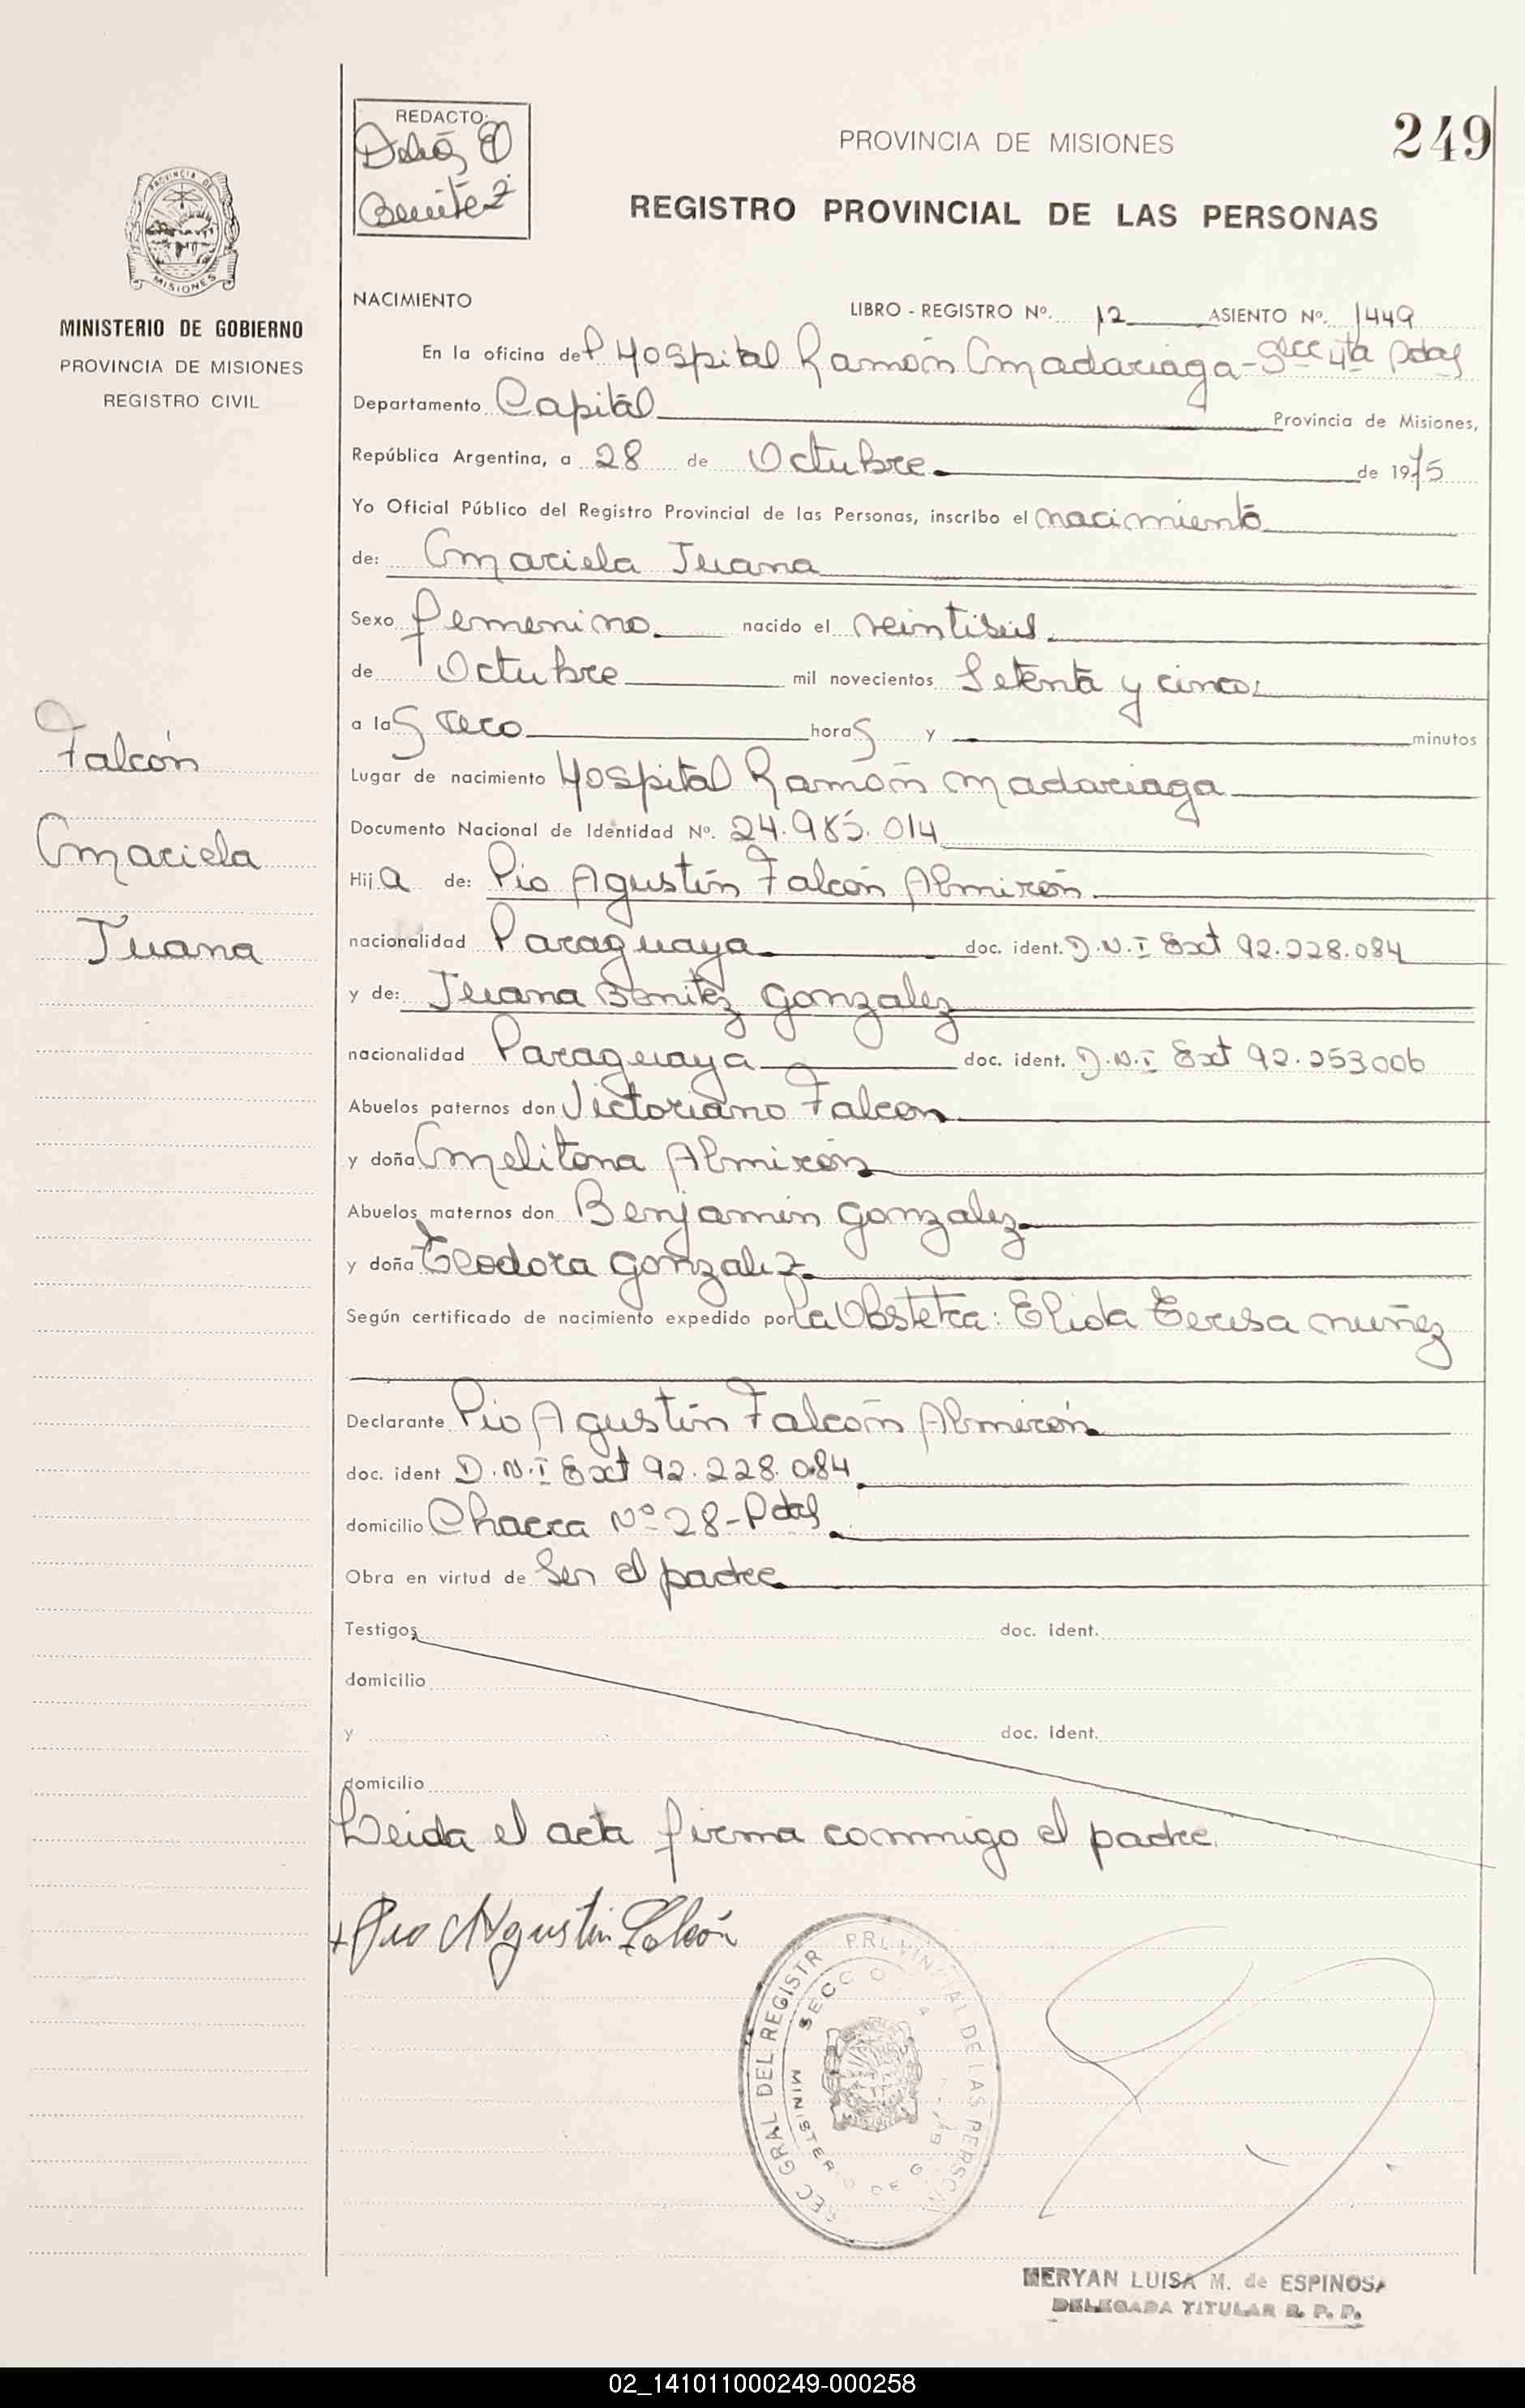 REDACTO:
Benitez
PROVINCIA DE MISIONES
249
REGISTRO PROVINCIAL DE LAS PERSONAS
PROVINCIA DE MISIONES
MINISTERIO DE GOBIERNO
PROVINCIA DE MISIONES
REGISTRO CIVIL
NACIMIENTO
LIBRO - REGISTRO Nº. 12 ASIENTO Nº. 1449
En la oficina del Hospital Ramón Madariaga - Secc 4ta Pdas
Departamento Capital Provincia de Misiones,
República Argentina, a 28 de Octubre de 1975
Yo Oficial Público del Registro Provincial de las Personas, inscribo el nacimiento
de: Mariela Juana
Sexo femenino nacido el veintiseis
de Octubre mil novecientos Setenta y cinco
a las cero horas y minutos
Lugar de nacimiento Hospital Ramón Madariaga
Documento Nacional de Identidad Nº. 24.985.014
Hija de: Pio Agustín Falcón Almirón
nacionalidad Paraguaya doc. ident. D.N.I Ext 92.228.084
y de: Juana Benitez Gonzalez
nacionalidad Paraguaya doc. ident. D.N.I Ext 92.253006
Abuelos paternos don Victoriano Falcon
y doña Melitona Almirón
Abuelos maternos don Benjamín Gonzalez
y doña Teodora Gonzalez
Según certificado de nacimiento expedido por la Obstetra: Elida Teresa Nuñez
Declarante Pio Agustín Falcón Almirón
doc. ident D.N.I Ext 92.228.084
domicilio Chacra Nº 28-Pdas
Obra en virtud de Ser el padre
Testigos doc. ident.
domicilio
y doc. ident.
domicilio
Leida el acta firma conmigo el padre.
+ Pio Agustin Falcón
Falcón
Mariela
Juana
MERYAN LUISA M. de ESPINOSA
DELEGADA TITULAR R. P. P.
02_141011000249-000258